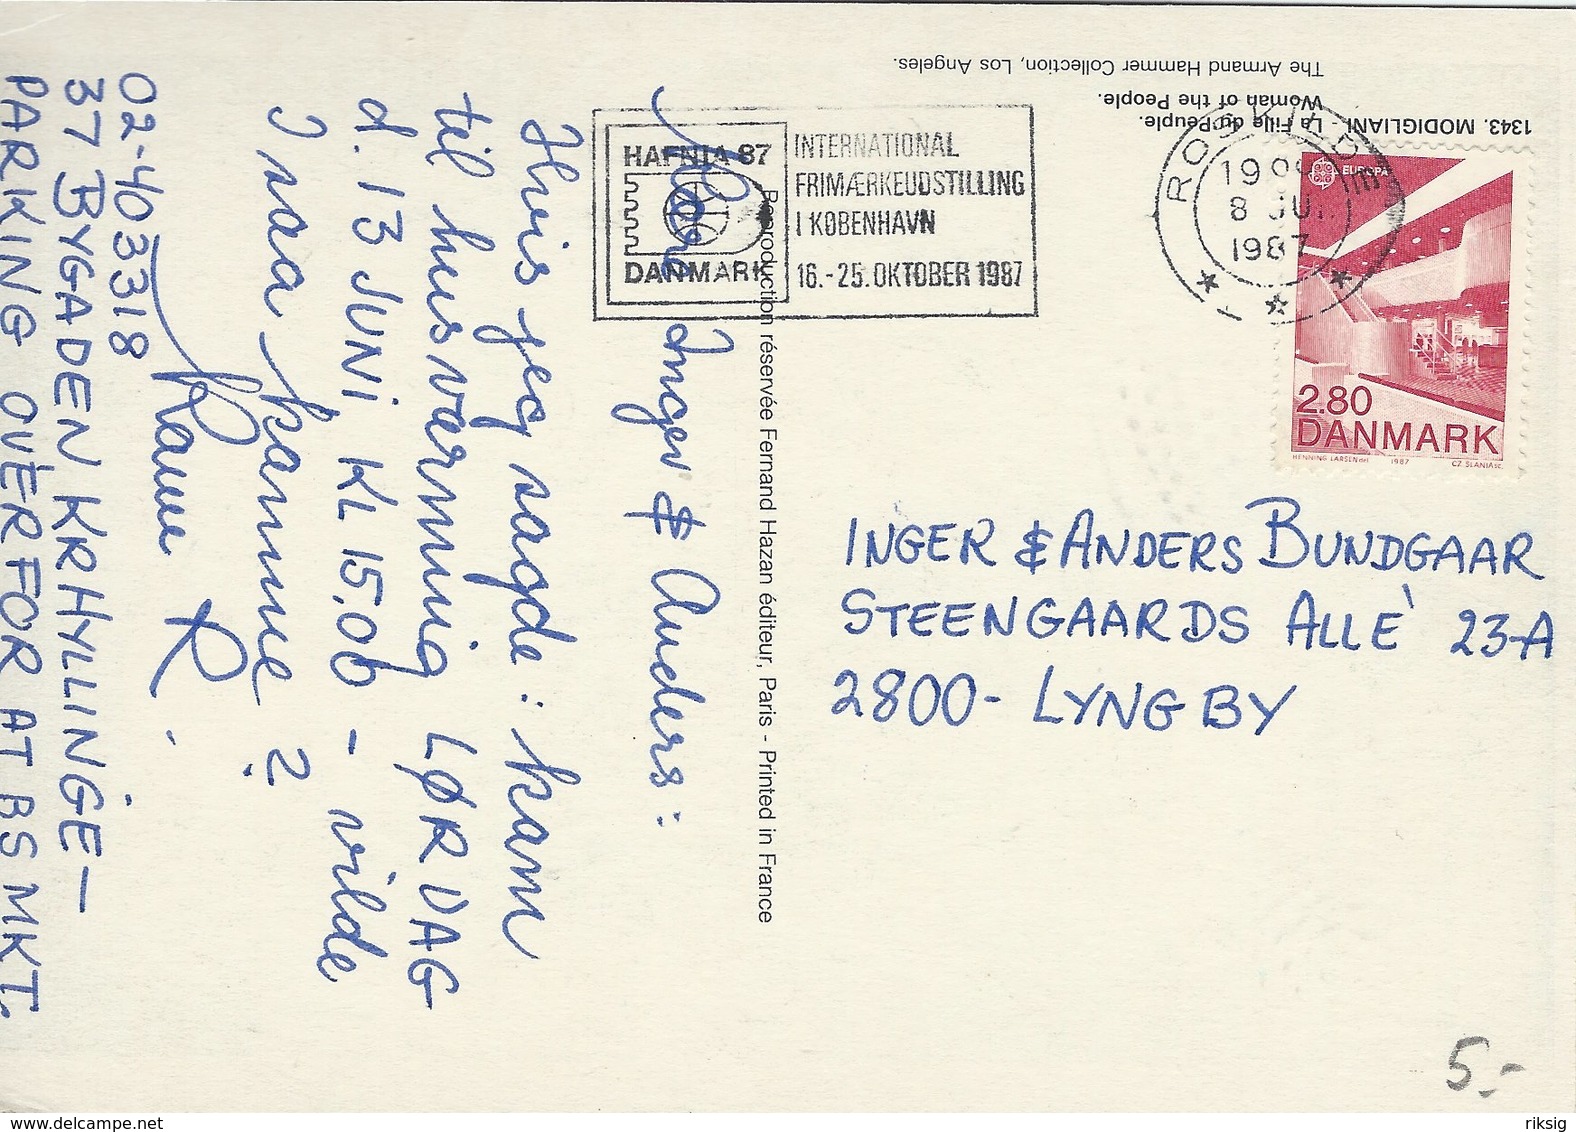 1343. MODIGLIANI - La Fille du Peuple.
Woman of the People.
The Armand Hammer Collection, Los Angeles.
HAFNIA 87
DANMARK
INTERNATIONAL
FRIMÆRKEUDSTILLING
I KØBENHAVN
16.-25. OKTOBER 1987
8 JUN
1987
EUROPA
2.80
DANMARK
HENNING LARSEN del. 1987 CZ. SLANIA sc.
Reproduction réservée Fernand Hazan éditeur, Paris - Printed in France
Kære Inger & Anders:
Hvis jeg sagde: kom
til husvarming LØRDAG
d. 13 JUNI KL 15.00 - vilde
I saa komme?
R.
02-403318
37 BYGADEN KRHYLLINGE -
PARKING OVERFOR AT BSMKT.
INGER & ANDERS BUNDGAAR
STEENGAARDS ALLÉ 23-A
2800 - LYNGBY
5.-
riksig